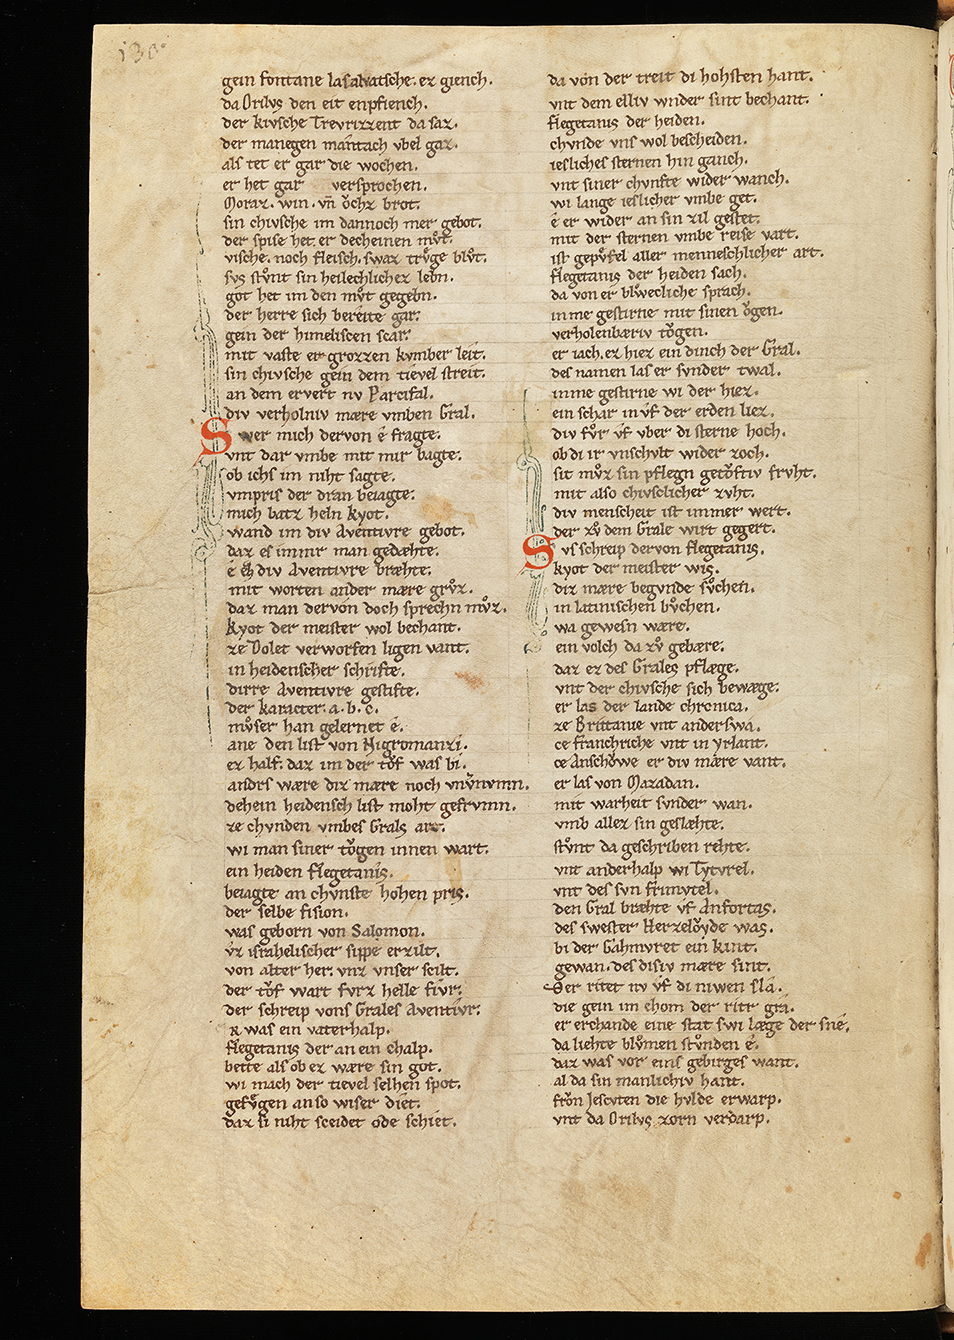 130
gein fontane lasalvatsche. ez giench.
da Orilvs den eit enpfiench.
der kivsche Trevrizzent da saz.
der manegen mantach vbel gaz.
als tet er gar die wochen.
er het gar versprochen.
Moraz. win. vn̄ ǒchz brot.
sin chivsche im dannoch mer gebot.
der spise het er decheinen mvͦt.
vische. noch fleisch. swaz trvͤge blvͦt.
svs stvͦnt sin heilechlichez lebn.
got het im den mvͦt gegebn.
der herre sich bereite gar.
gein der himeliscen scar.
mit vaste er grozzen kvmber leit.
sin chivsche gein dem tievel streit.
an dem ervert nv Parcifal.
div verholniv mære vmben Gral.
Swer mich dervon ê fragte.
vnt dar vmbe mit mir bagte.
ob ichs im niht sagte.
vmpris der dran beiagte.
mich batz heln kyot.
wand im div Aventivre gebot.
daz es immr man gedæhte.
ê div Aventivre bræhte.
mit worten ander mære grvͦz.
daz man dervon doch sprechn mvͦz.
kyot der meister wol bechant.
ze Dolet verworfen ligen vant.
in heidenscher schrifte.
dirre Aventivre gestifte.
der karacter. a. b. c.
mvͦser han gelernet ê.
ane den list von Nigromanzi.
ez half. daz im der tǒf was bi.
andrs wære dir mære noch vnvͦnvmn.
dehein heidensch list moht gefrvmn.
ze chvnden vmbes Grals art.
wi man siner tǒgen innen wart.
ein heiden flegetanis.
beiagte an chvnste hohen pris.
der selbe fision.
was geborn von Salomon.
vͦz israhelischer sippe erzilt.
von alter her. vnz vnser scilt.
der tǒf wart fvrz helle fivr.
der schreip vons Grales Aventivr.
R was ein vaterhalp.
flegetanis der an ein chalp.
bette als ob ez wære sin got.
wi mach der tievel selhen spot.
gefvͤgen an so wiser diet.
daz si niht sceidet ode schiet.
da von der treit di hohsten hant.
vnt dem elliv wnder sint bechant.
flegetanis der heiden.
chvnde vns wol bescheiden.
iesliches sternen hin ganch.
vnt siner chvnfte wider wanch.
wi lange ieslicher vmbe get.
ê er wider an sin zil gestet.
mit der sternen vmbe reise vart.
ist gepvͤfel aller menneschlicher art.
flegetanis der heiden sach.
da von er blvͤwecliche sprach.
inme gestirne mit sinen ǒgen.
verholenbæriv tǒgen.
er iach. ez hiez ein dinch der Gral.
des namen las er svnder twal.
inme gestirne wi der hiez.
ein schar in vͦf der erden liez.
div fvͦr vͦf vber di sterne hoch.
ob di ir vnschvlt wider zoch.
sit mvͦz sin pflegn getǒftiv frvht.
mit also chivslicher zvht.
div menscheit ist immer wert.
der zvͦ dem Grale wirt gegert.
Svs schreip dervon flegetanis.
kyot der meister wis.
diz mære begvnde svͦchen.
in latinischen bvͦchen.
wa gewesn wære.
ein volch da zvͦ gebære.
daz ez des Grales pflæge.
vnt der chivsche sich bewæge.
er las der lande chronica.
ze Brittanie vnt anderswa.
ce franchriche vnt in yrlant.
ce Anschǒwe er div mære vant.
er las von Mazadan.
mit warheit svnder wan.
vmb allez sin geslæhte.
stvͦnt da geschriben rehte.
vnt anderhalp wi Tytvrel.
vnt des svn frimvtel.
den Gral bræhte vͦf Anfortas.
des swester Herzelǒyde was.
bi der Gahmvret ein kint.
gewan. des disiv mære sint.
Der ritet nv vͦf di niwen sla.
die gein im chom der ritr gra.
er erchande eine stat swi læge der sne.
da liehte blvͦmen stvͦnden ê.
daz was vor eins gebirges want.
al da sin manlichiv hant.
frǒn Jescvten die hvlde erwarp.
vnt da Orilvs zorn verdarp.